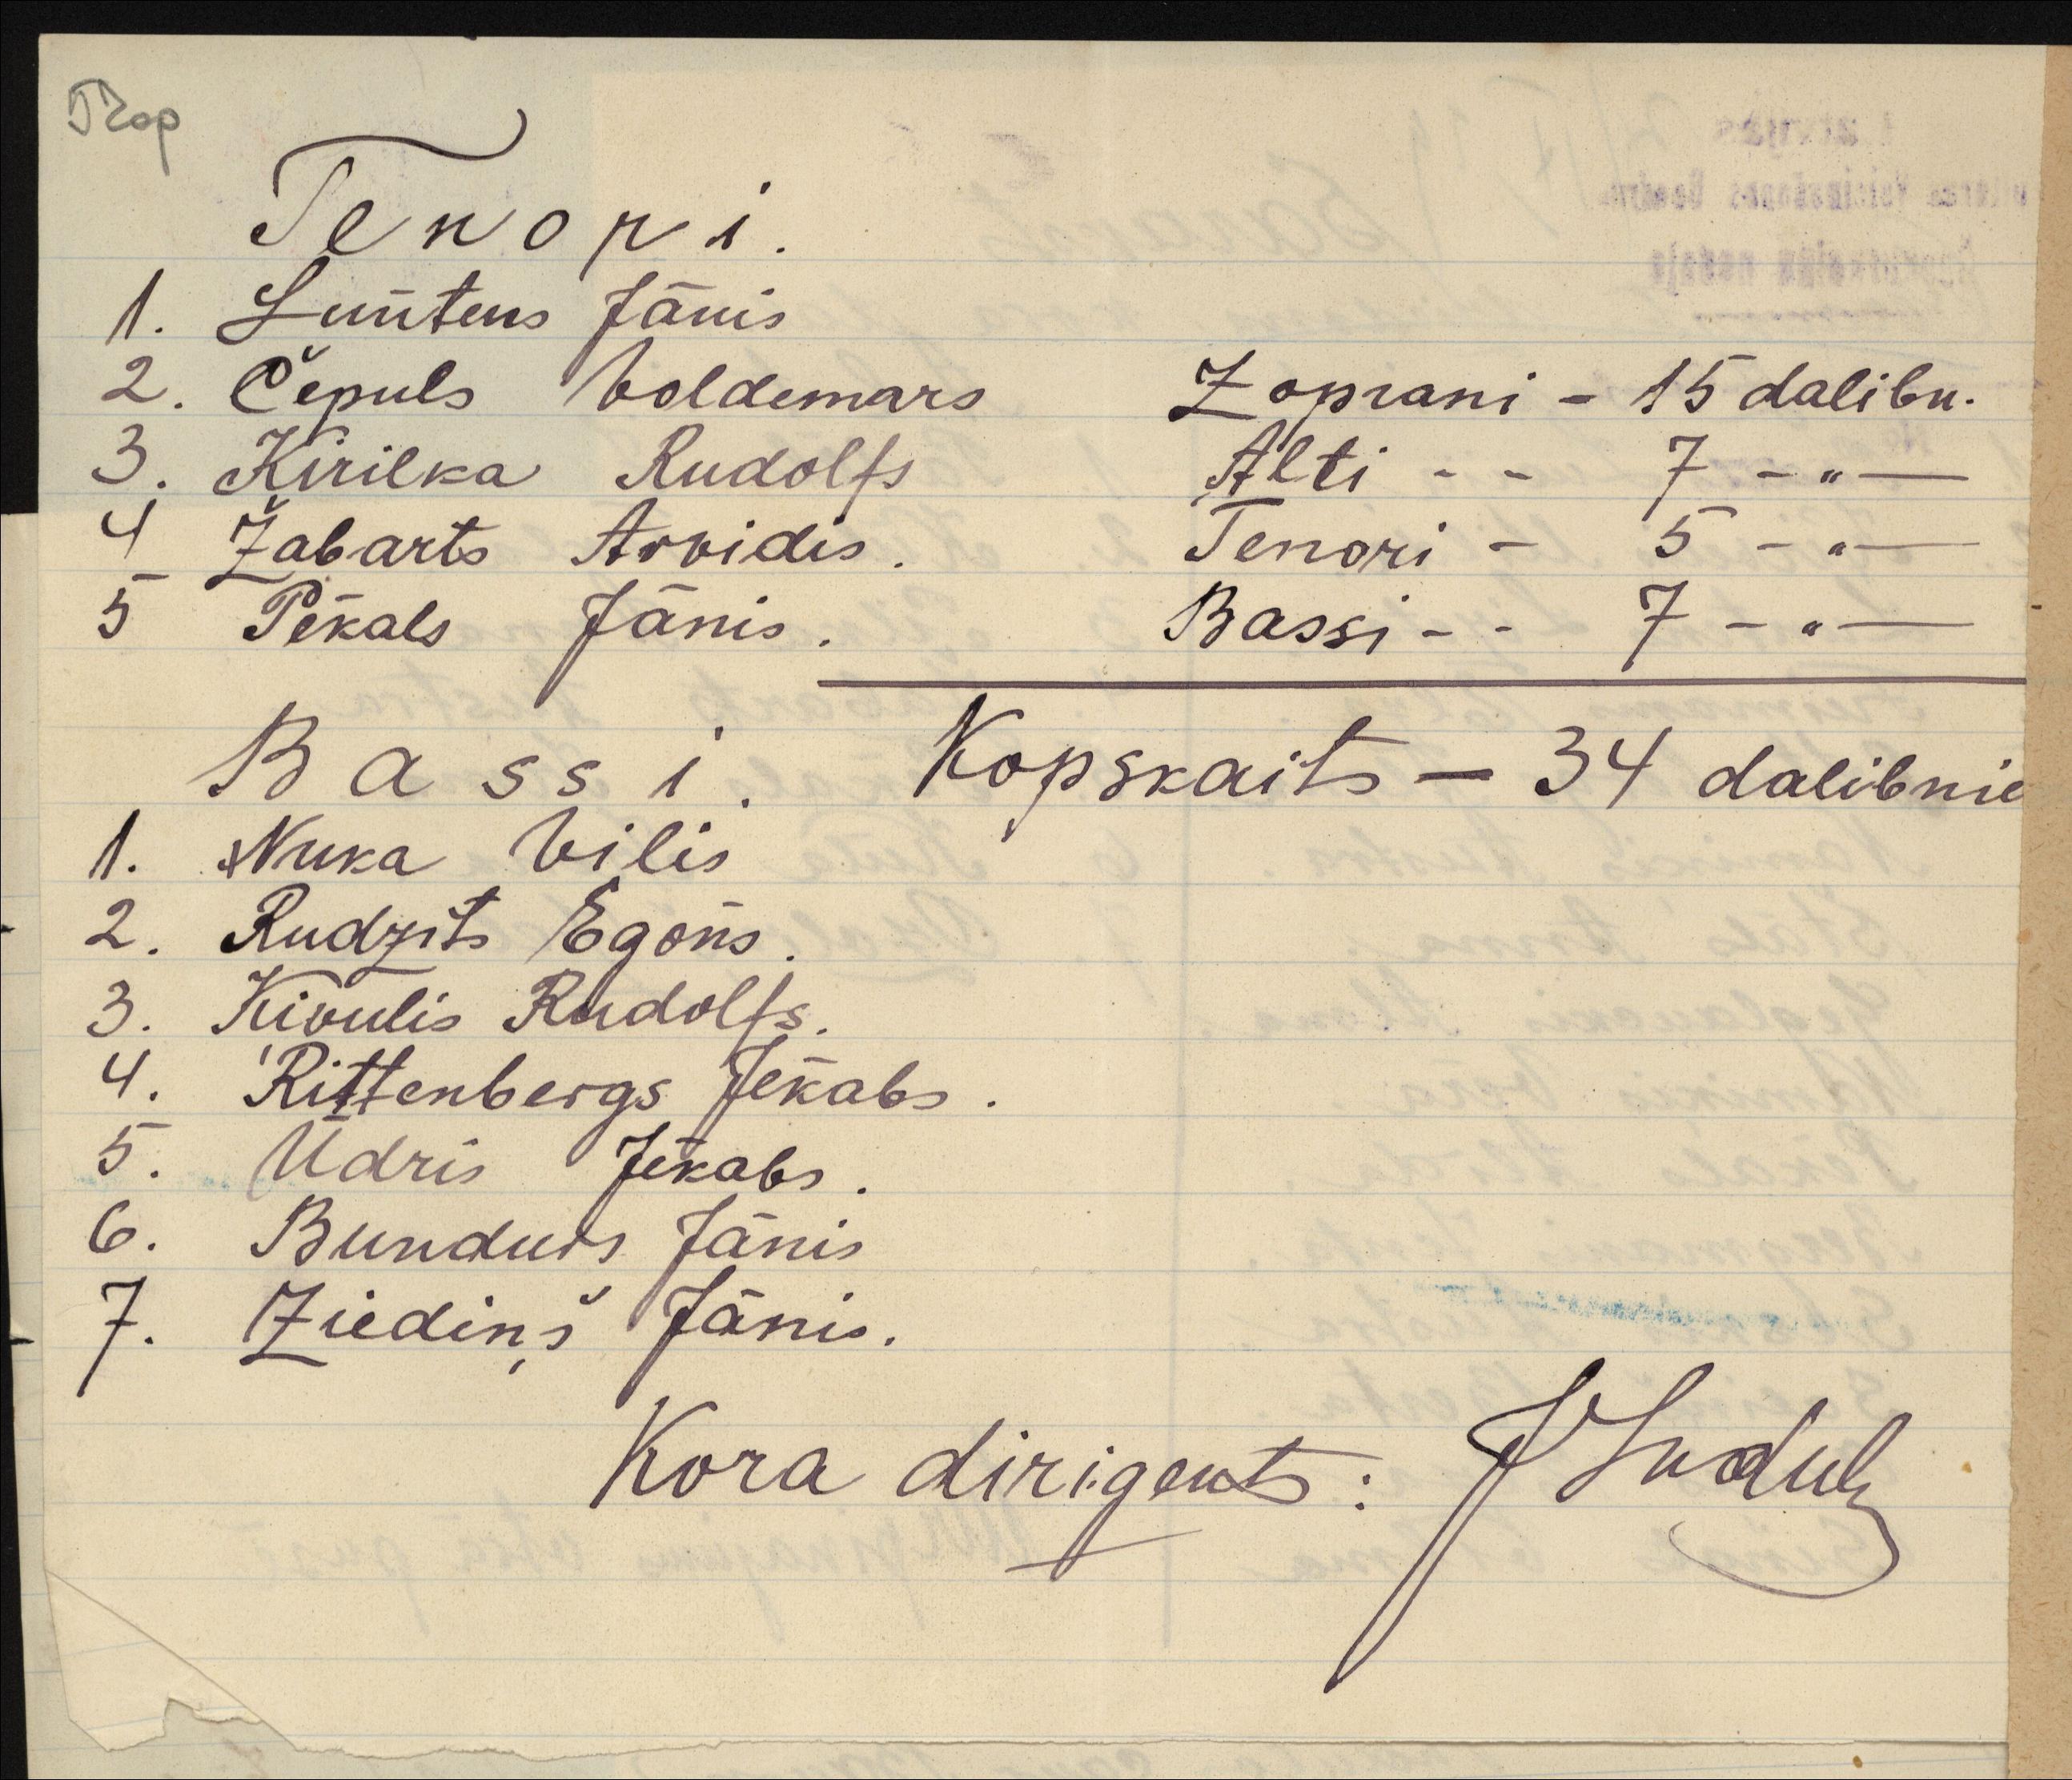 Tenori.
1. Luntens Jānis
2. Čepuls Voldemars
3. Kirilka Rudolfs
4 Žabarts Arvidis.
5 Pēkals Jānis.
Zoprani - 15 dalibn.
Alti - - 7 - " -
Tenori - 5 - " -
Bassi - - 7 - " -
Kopskaits - 34 dalibnie
Bassi.
1. Nuka Vilis
2. Rudzīts Egons.
3. Kivulis Rudolfs.
4. Rittenbergs Jēkabs.
5. Ūdris Jēkabs.
6. Bundurs Jānis
7. Ziediņš Jānis.
Kora dirigents: